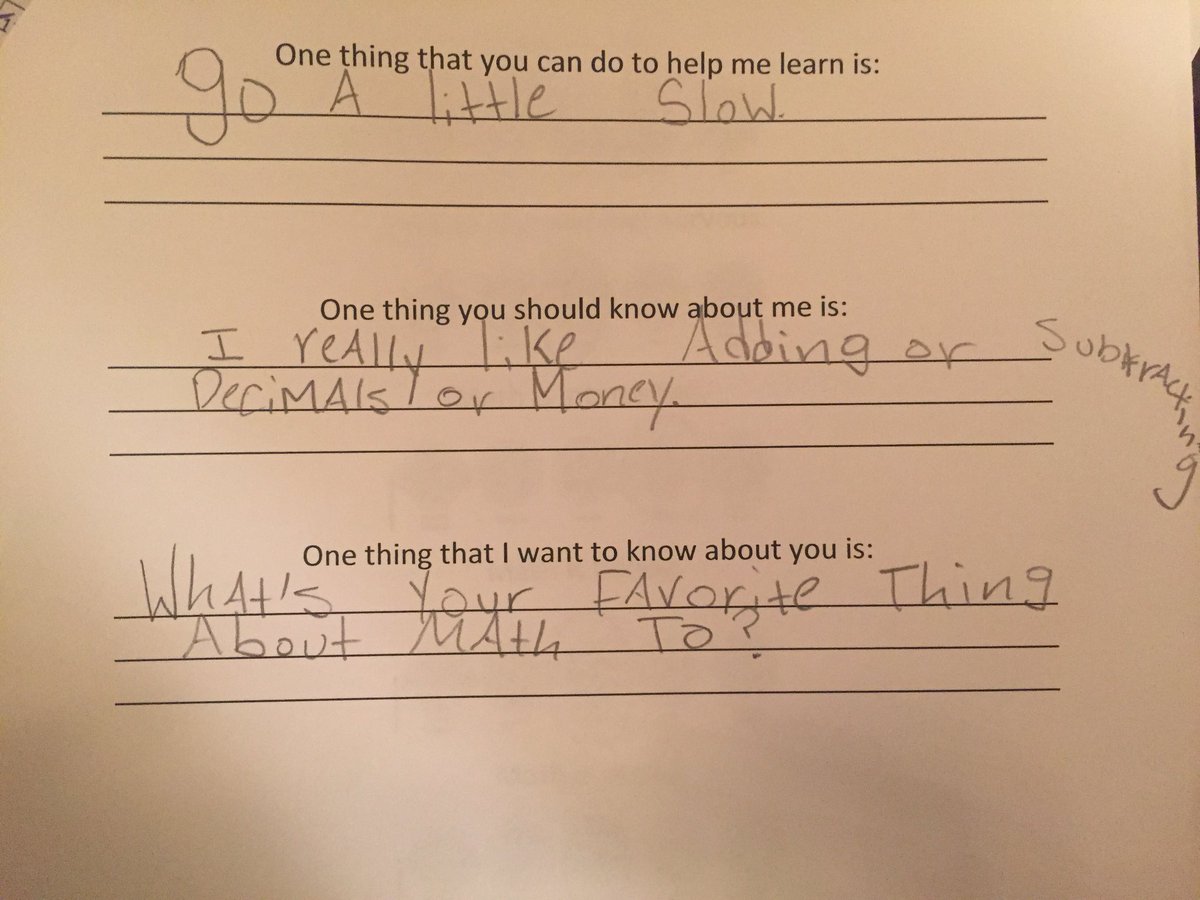 One thing that you can do to help me learn is:
go A little Slow.
One thing you should know about me is:
I reAlly like Adding or Subtracting
DeciMAls or Money.
One thing that I want to know about you is:
WhAt's Your FAvorite Thing
About MAth To?